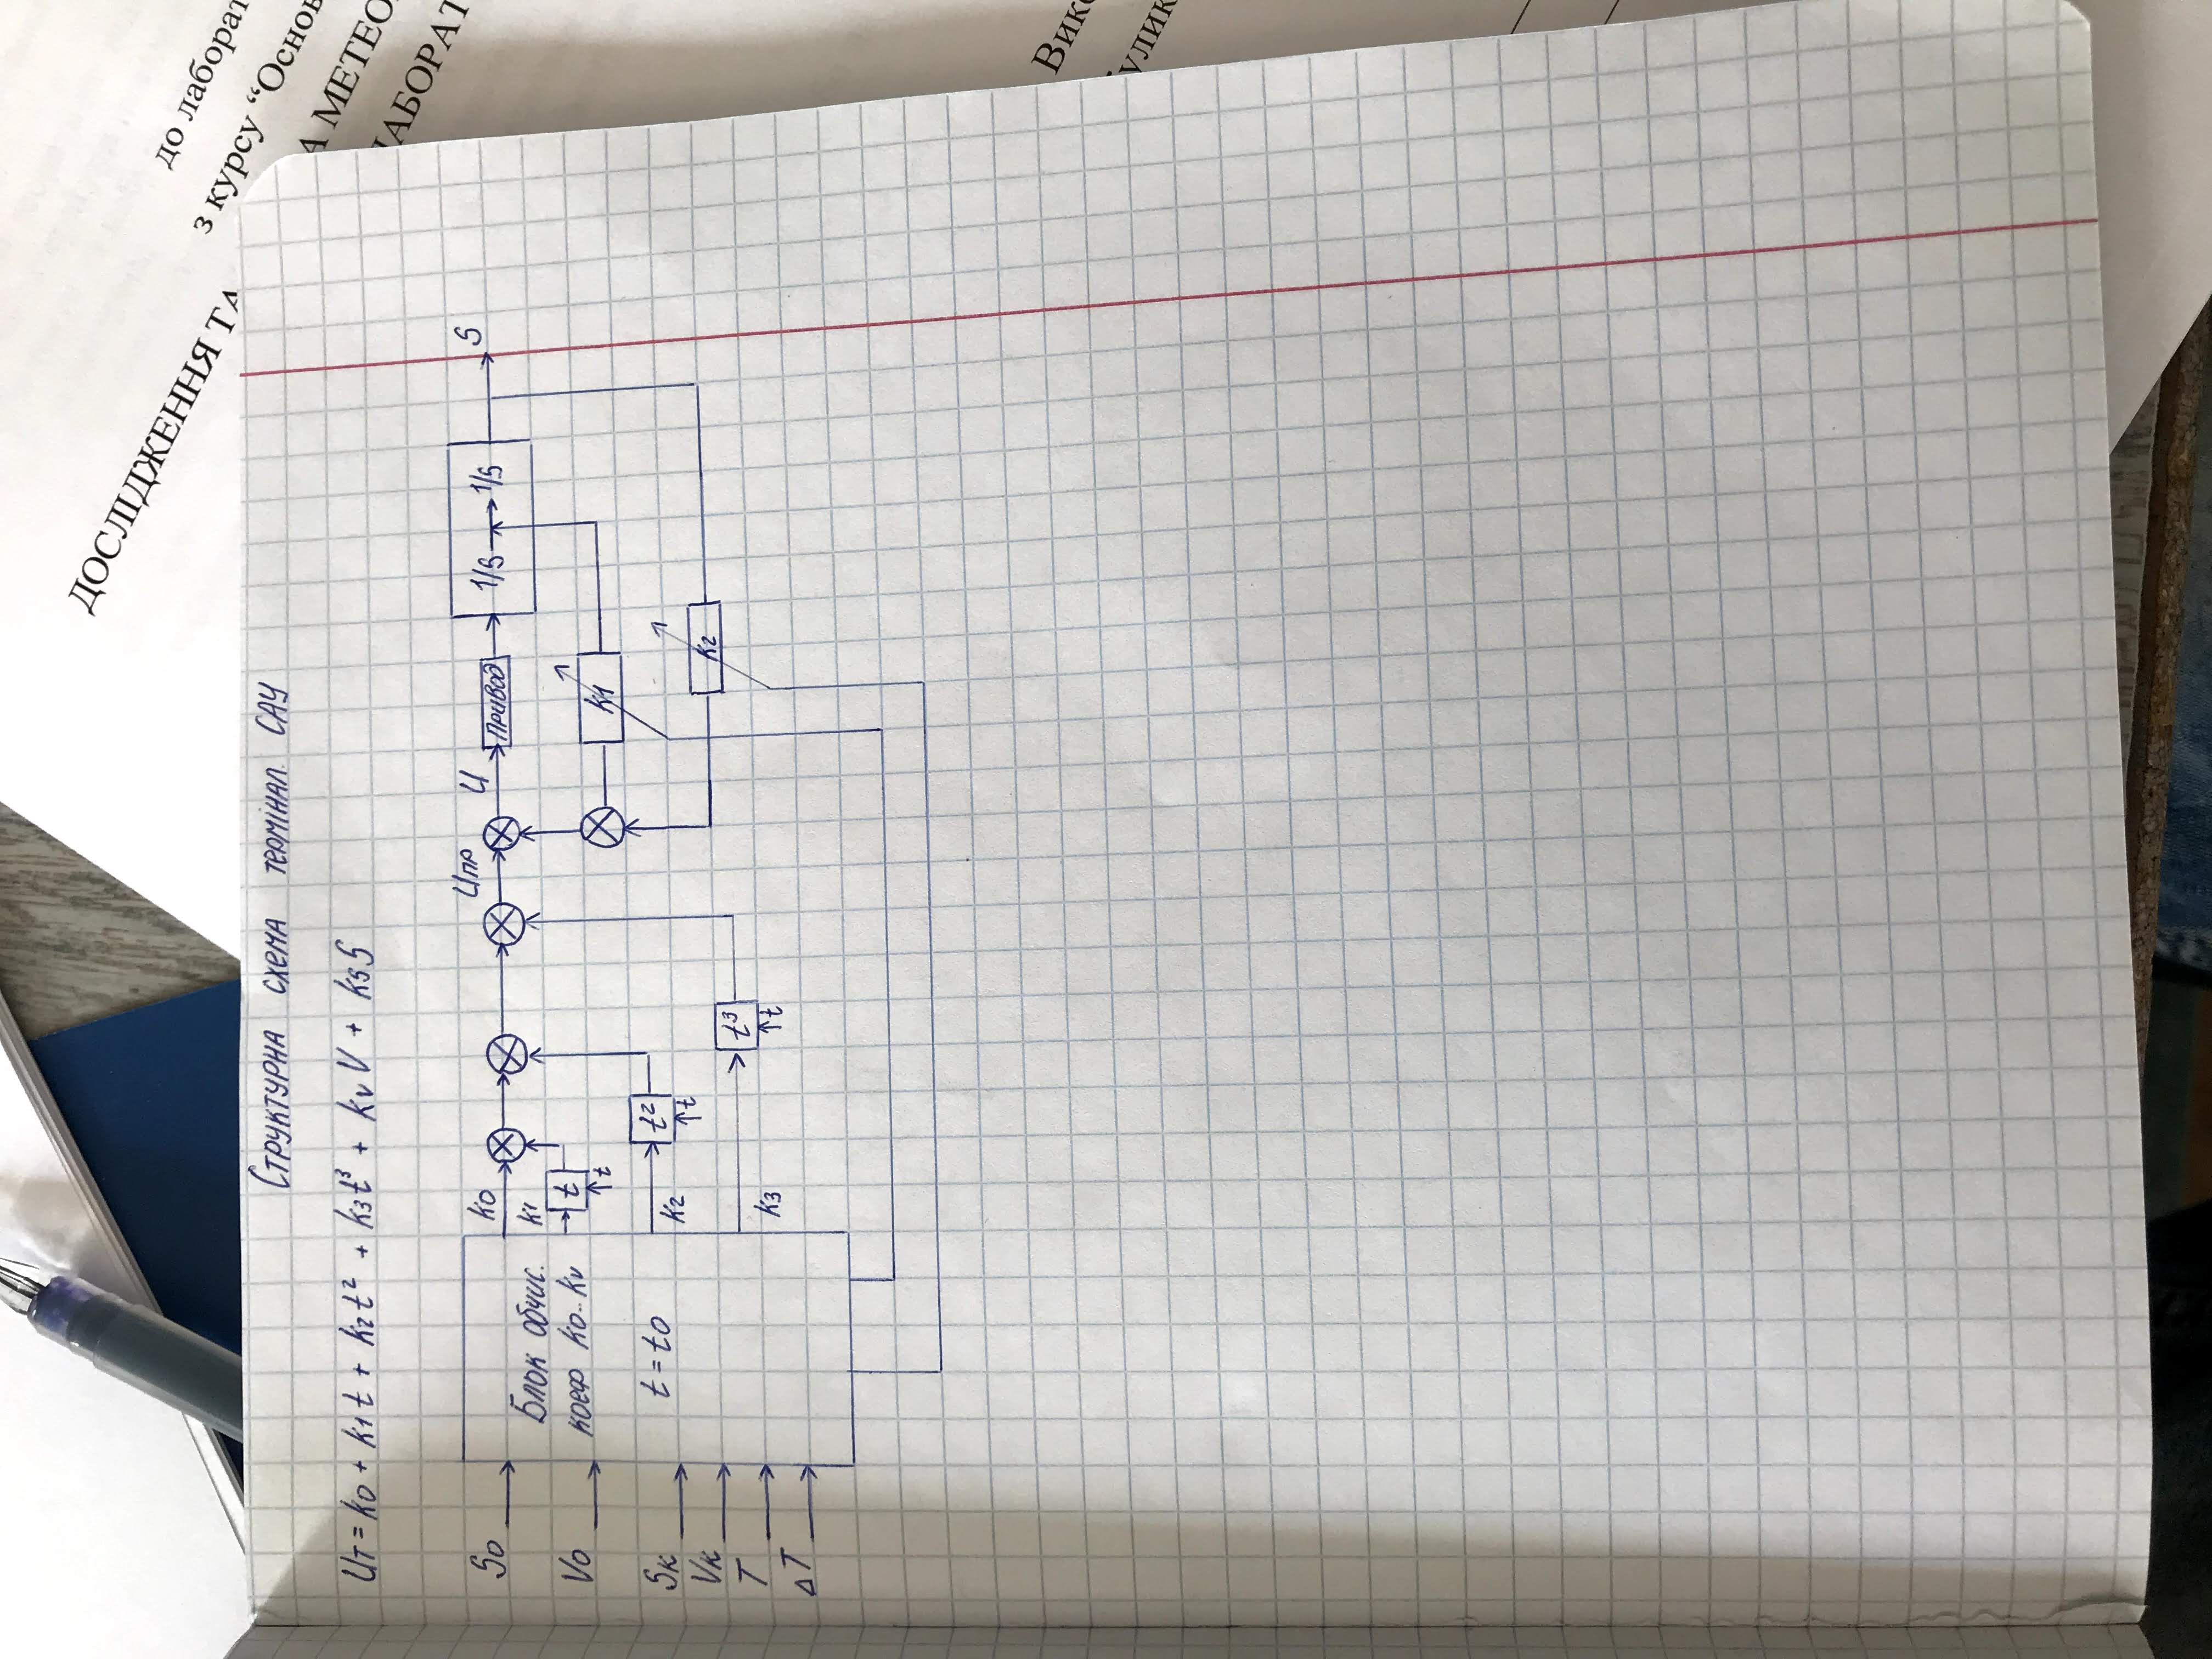 ДОСЛІДЖЕННЯ ТА
до лаборат
з курсу “Основ
А МЕТЕО
ЛАБОРАТ
Структурна схема термінал. САУ
Uт = k0 + k1t + k2t² + k3t³ + kvV + ksS
S0
V0
Sк
Vк
T
ΔT
Блок обчис.
коеф k0..kv
t = t0
k0
k1
t
t
k2
t²
t
k3
t³
t
Uпр
U
Привод
1/s
1/s
S
k1
k2
Вико
улик